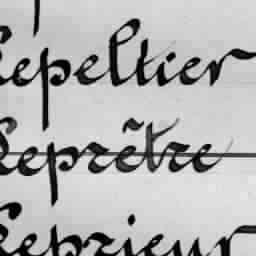 Lepeltier
Leprêtre
Leprieur